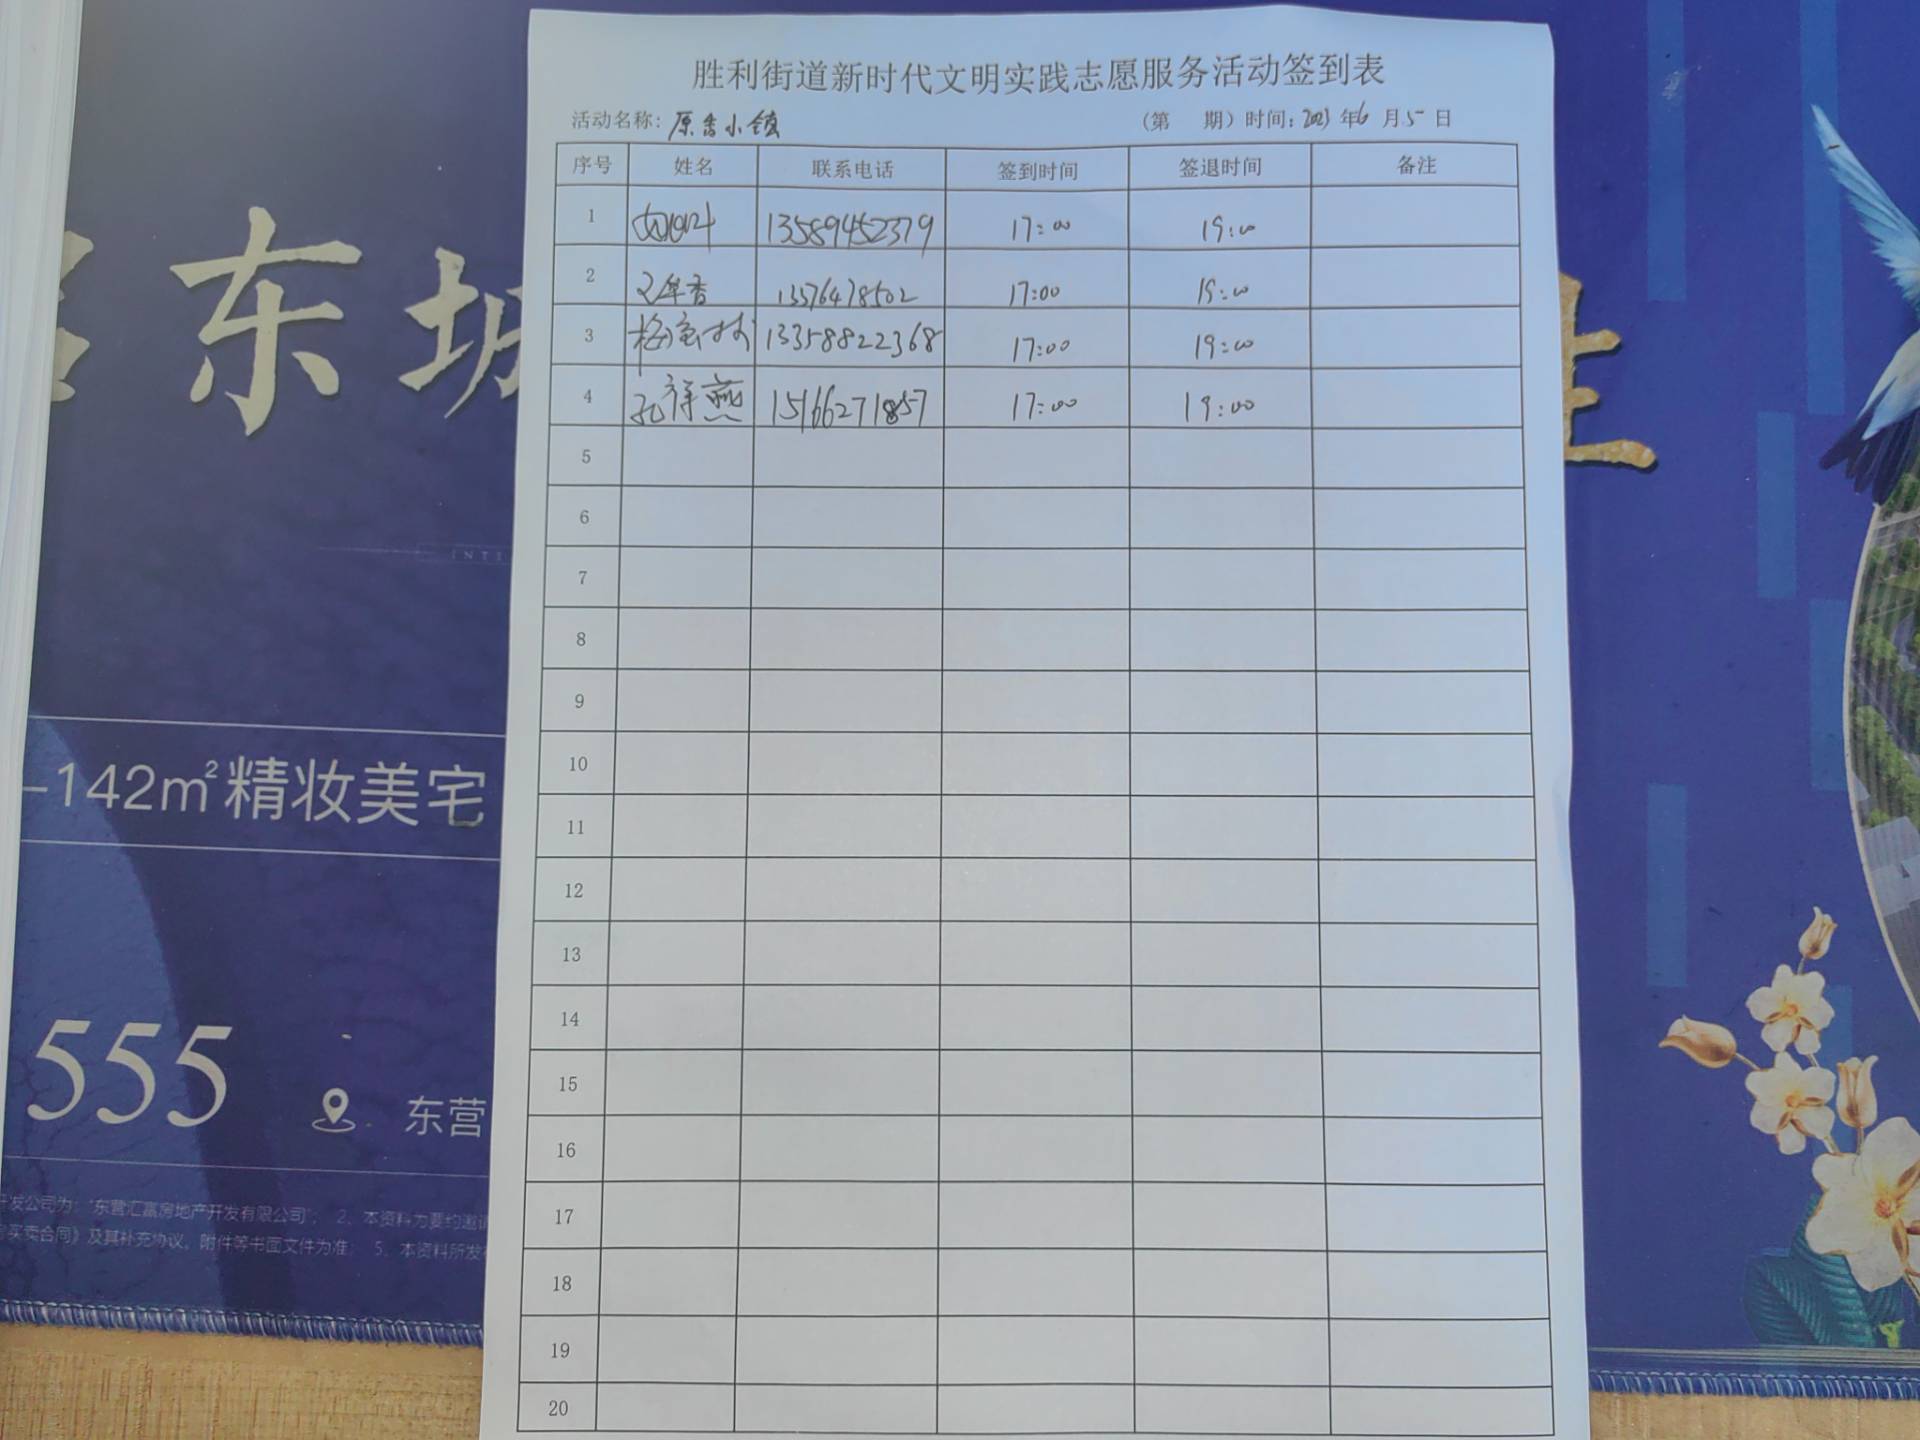 胜利街道新时代文明实践志愿服务活动签到表
活动名称: 原香小镇 (第 期) 时间: 2023 年 6 月 5 日
序号 姓名 联系电话 签到时间 签退时间 备注
1 13589452379 17:00 19:00
2 13376478502 17:00 19:00
3 13358822368 17:00 19:00
4 孔祥燕 15166271857 17:00 19:00
5
6
7
8
9
10
11
12
13
14
15
16
17
18
19
20
东城
INTE
-142m²精妆美宅
555
东营
开发公司为:"东营汇富房地产开发有限公司"; 2、本资料为要约邀请
买卖合同》及其补充协议，附件等书面文件为准; 5、本资料所发